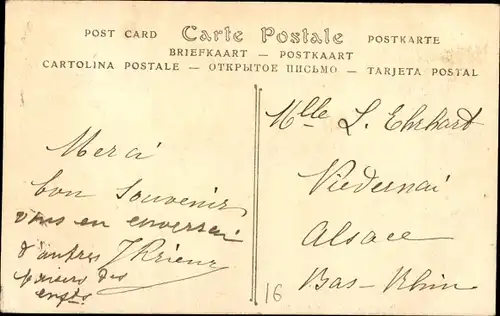 POST CARD Carte Postale POSTKARTE
BRIEFKAART — POSTKAART
CARTOLINA POSTALE — ОТКРЫТОЕ ПИСЬМО — TARJETA POSTAL
Merci
bon Souvenir
vous en enverrai
d'autres
baisers des
enfts
Mlle L. Ehrhart
Niedernai
Alsace
Bas-Rhin
16